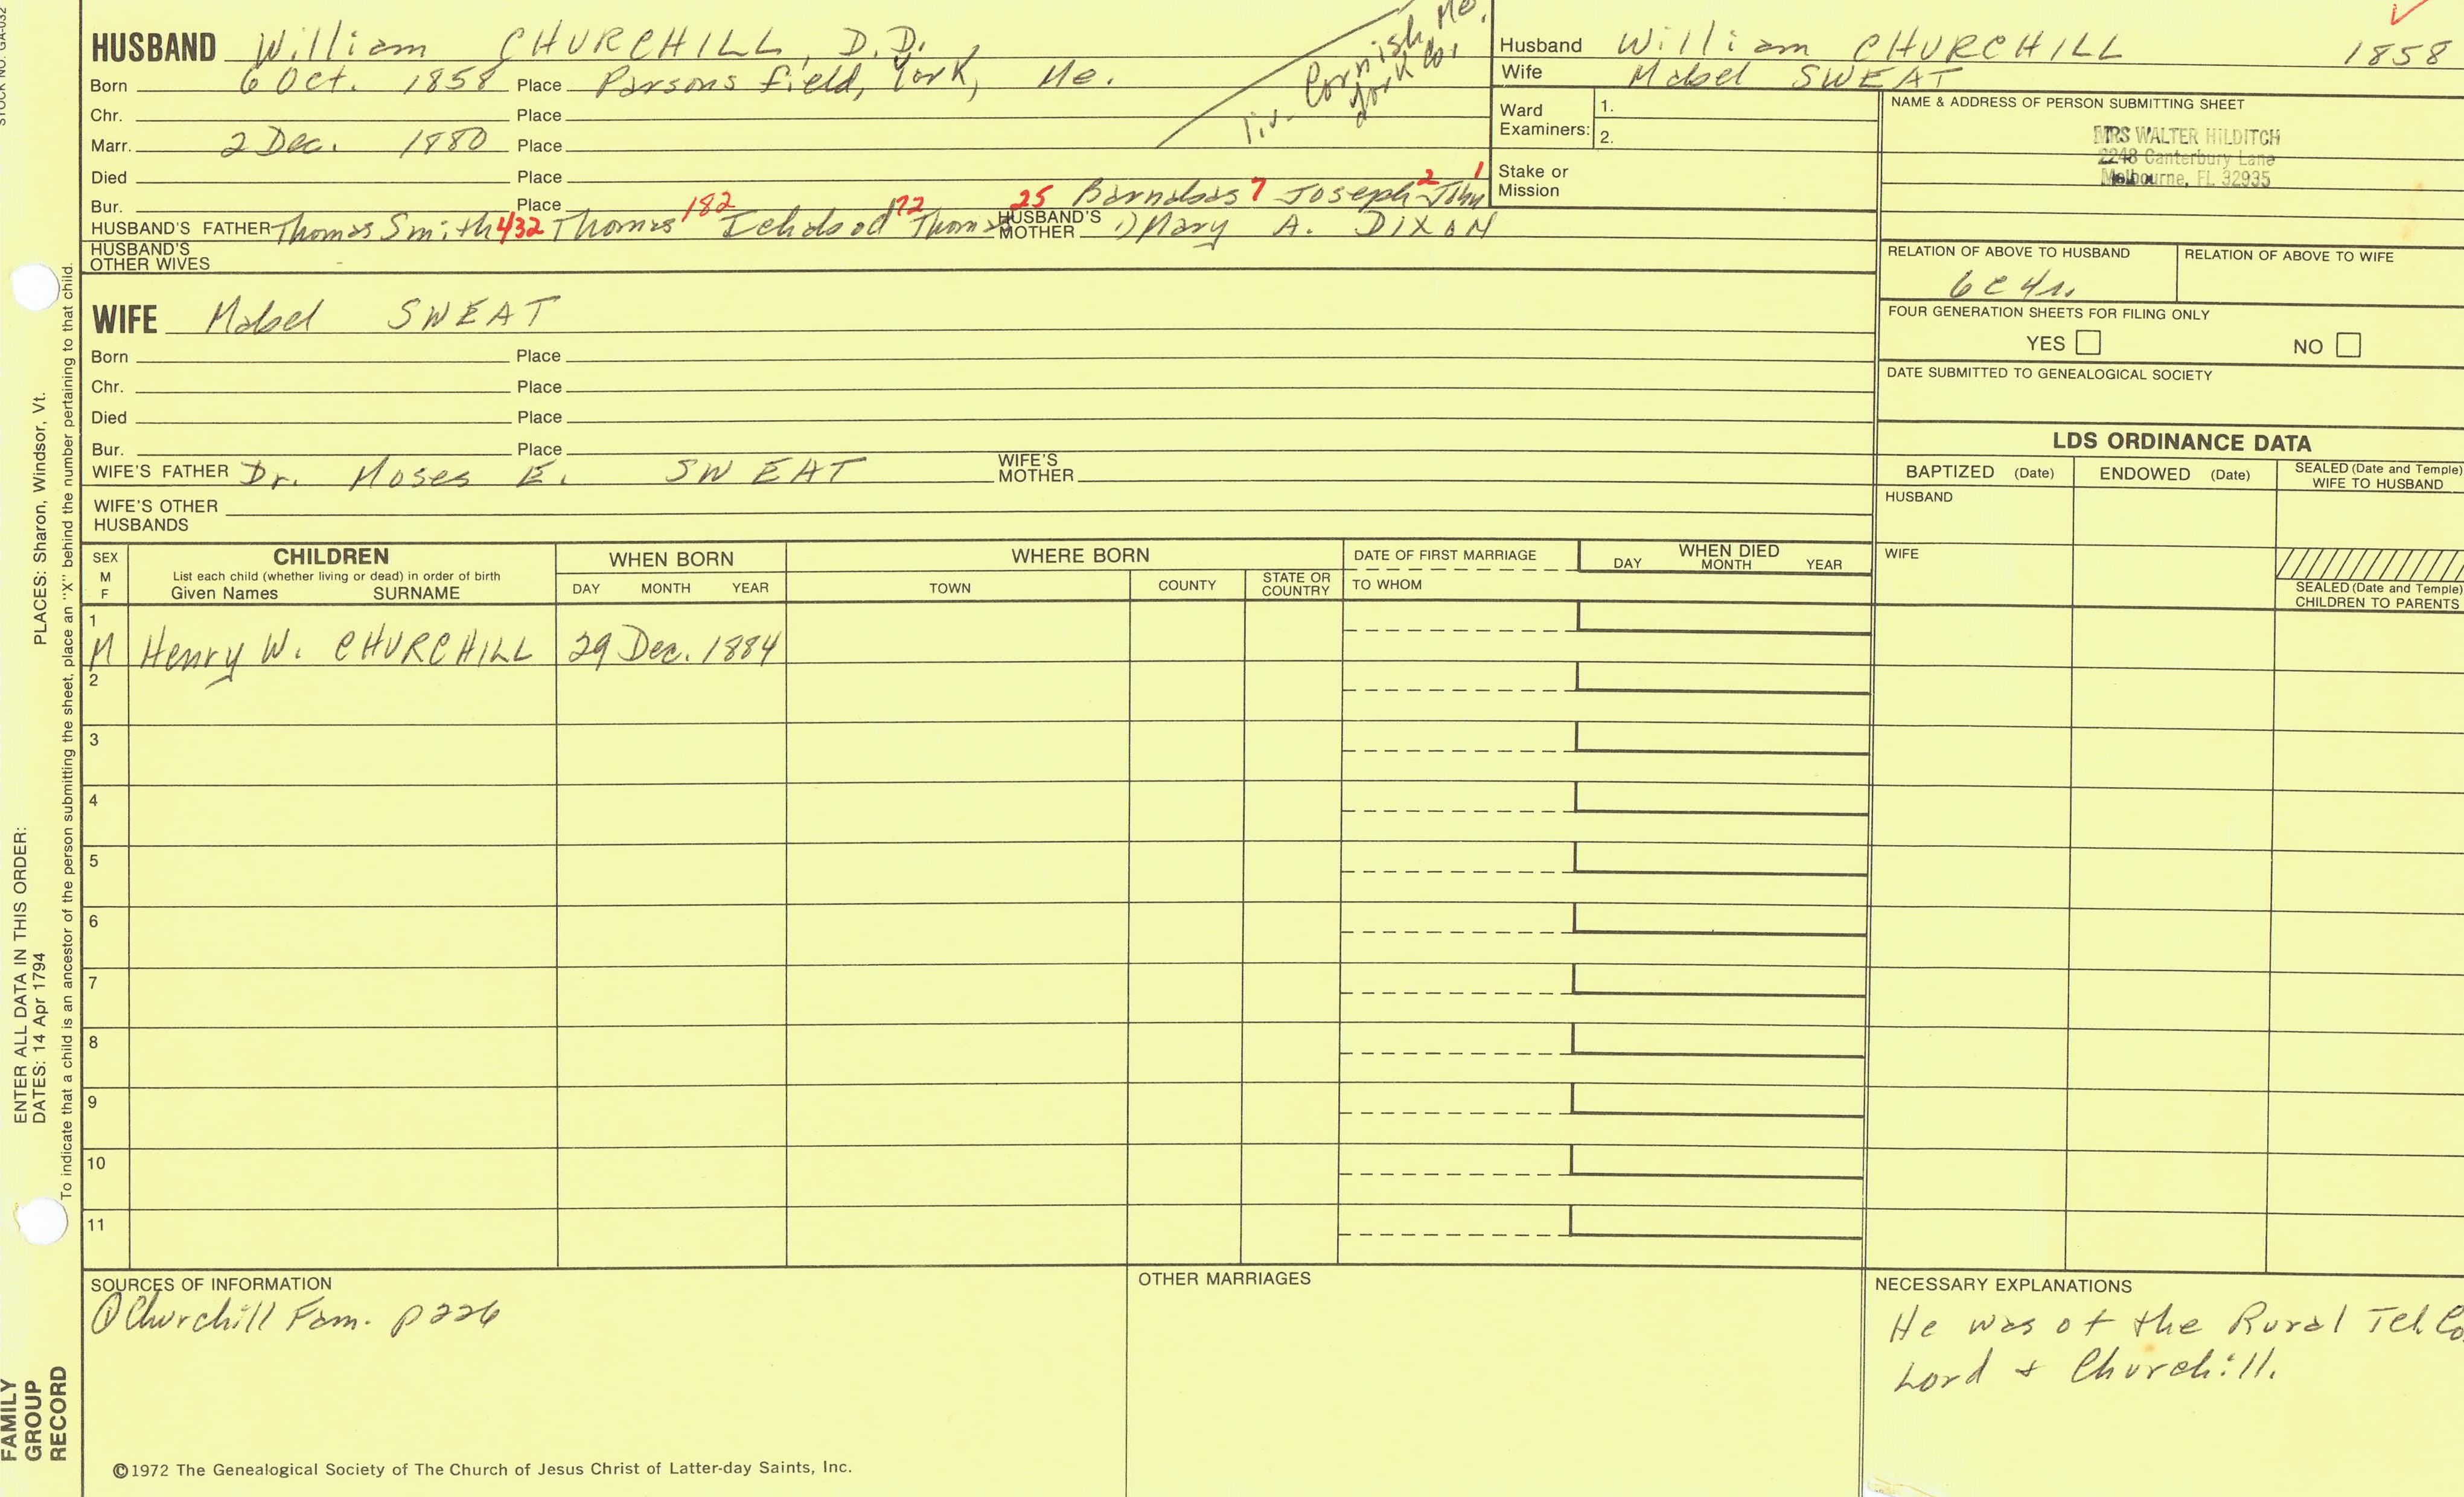 STOCK NO. GA-032
HUSBAND William CHURCHILL, D.D.
Born 6 Oct. 1858 Place Parsonsfield, York, Me.
Chr. Place
Marr. 2 Dec. 1880 Place
Died Place
Bur. Place
liv. Cornish, Me.
York Co.
25 Barnabas 7 Joseph 2 John 1
HUSBAND'S FATHER Thomas Smith 432 Thomas 182 Ichabod 72 Thomas HUSBAND'S MOTHER 1) Mary A. DIXON
HUSBAND'S OTHER WIVES
Husband William CHURCHILL 1858
Wife Mabel SWEAT
Ward Examiners: 1.
2.
Stake or Mission
NAME & ADDRESS OF PERSON SUBMITTING SHEET
MRS WALTER HILDITCH
2248 Canterbury Lane
Melbourne, FL 32935
RELATION OF ABOVE TO HUSBAND RELATION OF ABOVE TO WIFE
6c4r.
FOUR GENERATION SHEETS FOR FILING ONLY
YES NO
DATE SUBMITTED TO GENEALOGICAL SOCIETY
WIFE Mabel SWEAT
Born Place
Chr. Place
Died Place
Bur. Place
WIFE'S FATHER Dr. Moses E. SWEAT WIFE'S MOTHER
WIFE'S OTHER HUSBANDS
LDS ORDINANCE DATA
BAPTIZED (Date) ENDOWED (Date) SEALED (Date and Temple) WIFE TO HUSBAND
HUSBAND
WIFE
SEALED (Date and Temple) CHILDREN TO PARENTS
SEX M F
CHILDREN
List each child (whether living or dead) in order of birth
Given Names SURNAME
WHEN BORN
DAY MONTH YEAR
WHERE BORN
TOWN COUNTY STATE OR COUNTRY
DATE OF FIRST MARRIAGE
TO WHOM
WHEN DIED
DAY MONTH YEAR
1
M Henry W. CHURCHILL 29 Dec. 1884
2
3
4
5
6
7
8
9
10
11
SOURCES OF INFORMATION
① Churchill Fam. p 226
OTHER MARRIAGES
NECESSARY EXPLANATIONS
He was of the Rural Tel. Co
Lord & Churchill.
©1972 The Genealogical Society of The Church of Jesus Christ of Latter-day Saints, Inc.
FAMILY GROUP RECORD
ENTER ALL DATA IN THIS ORDER:
DATES: 14 Apr 1794
PLACES: Sharon, Windsor, Vt.
To indicate that a child is an ancestor of the person submitting the sheet, place an "X" behind the number pertaining to that child.